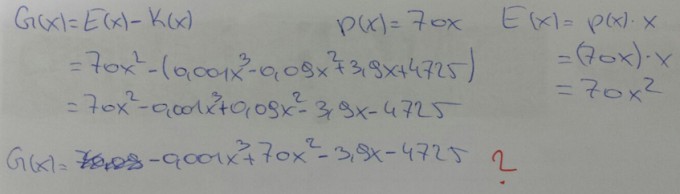 G(x)=E(x)-K(x) p(x)=70x E(x)=p(x)·x
=70x²-(0,001x³-0,09x²+3,9x+4725) =(70x)·x
=70x²-0,001x³+0,09x²-3,9x-4725 =70x²
G(x)= -0,001x³+70x²-3,9x-4725 ?